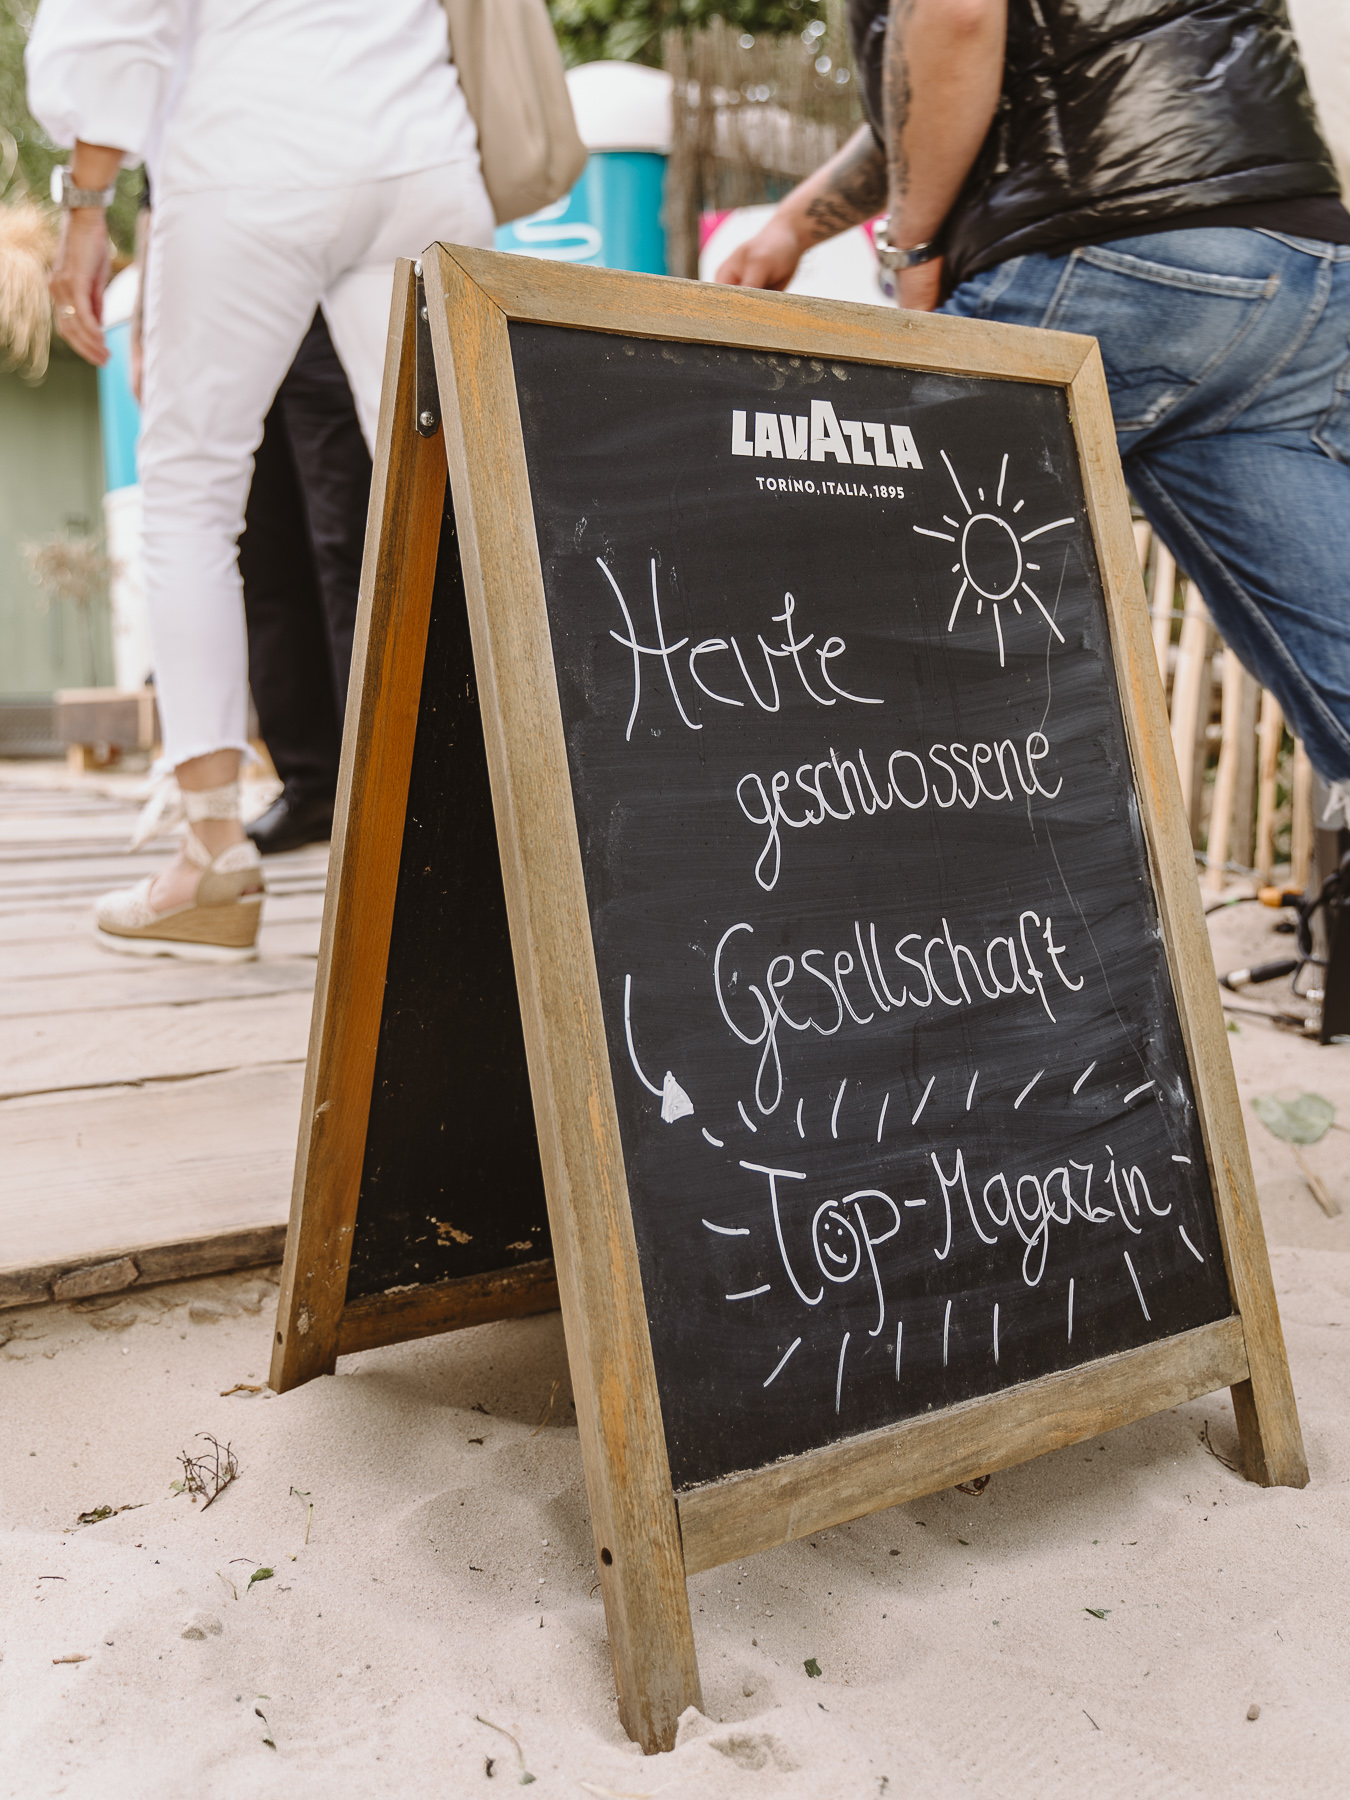 LAVAZZA
TORINO, ITALIA, 1895
Heute
geschlossene
Gesellschaft
Top-Magazin